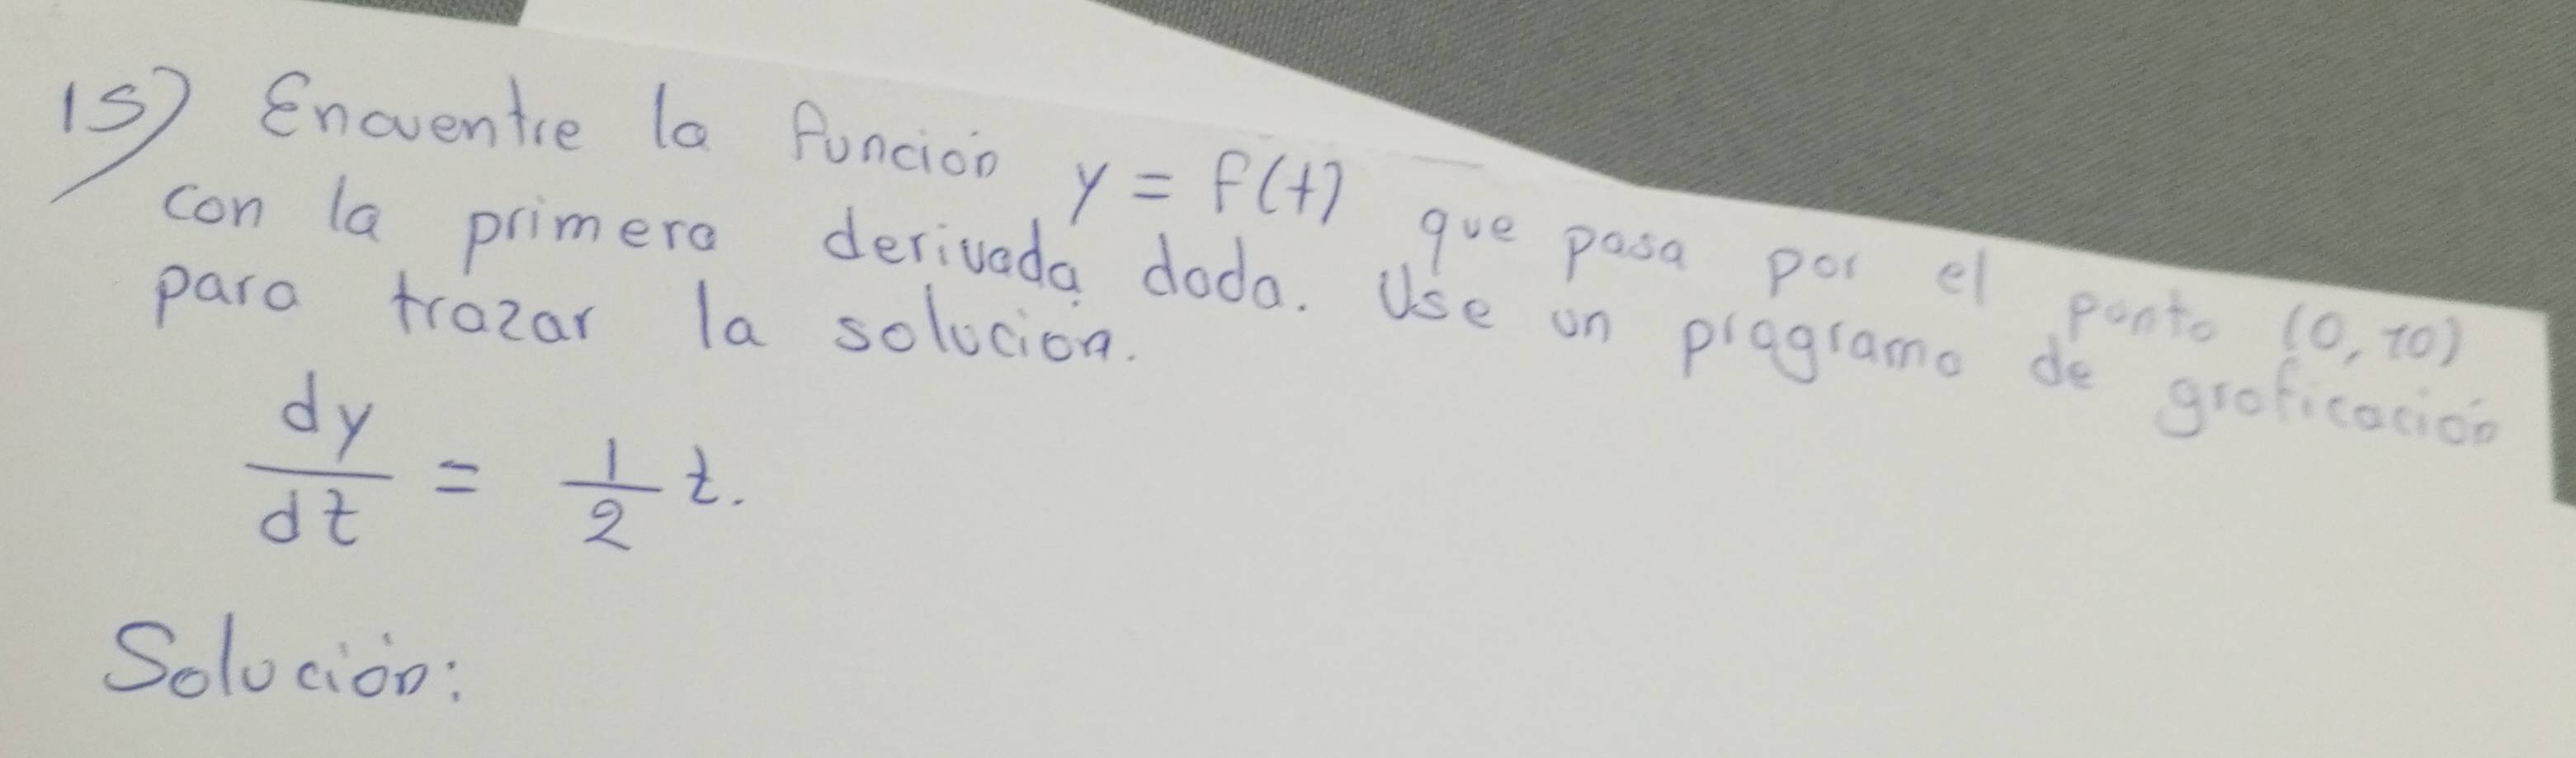 15) Encuentre la función y = f(t) que pasa por el punto (0, 10)
con la primera derivada dada. Use un programa de graficación
para trazar la solución.
dy/dt = 1/2 t.
Solución: